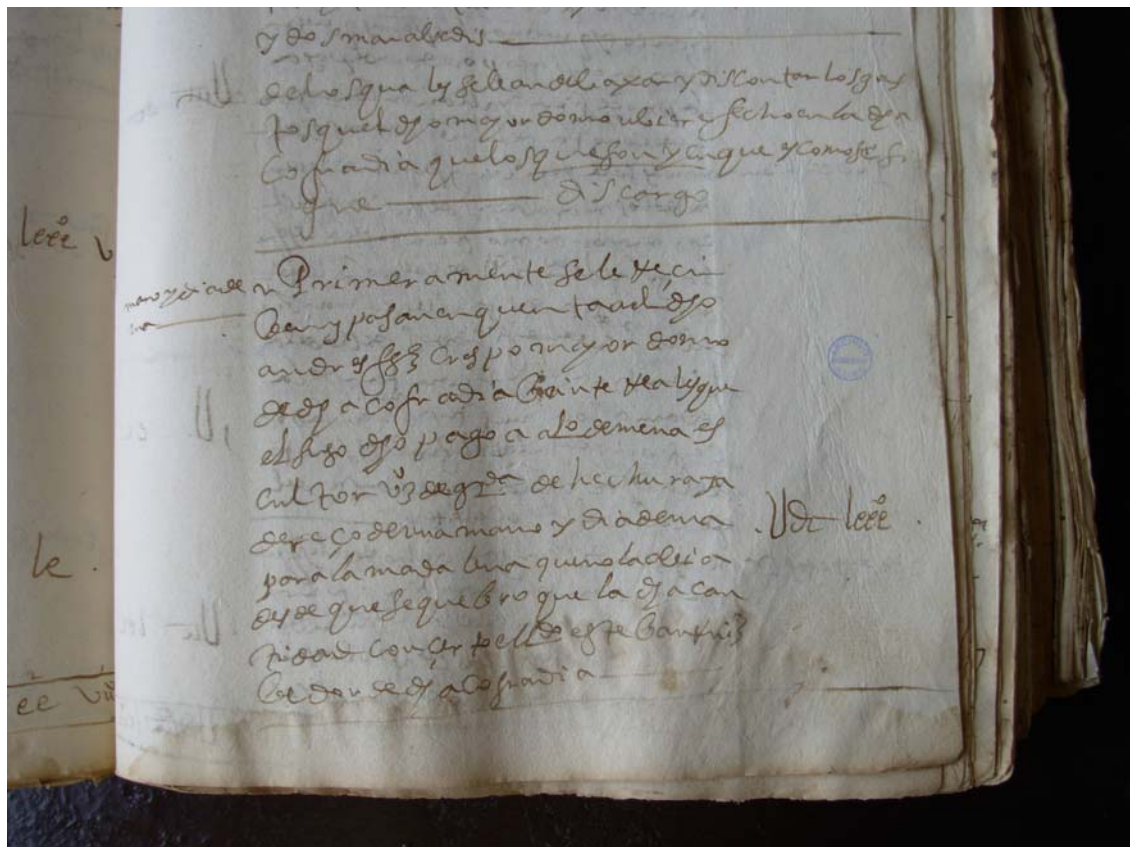 y dos maravedis
de los quales se le an de baxar y discontar los gas
tos quel dho mayordomo ubiere fecho en la dha
cofradia que los que son y en que y como se si
gue descargo
Primeramente se le reci
ben y pasan en quenta al dho
andres frz crespo mayordomo
de dha cofradia beinte reales que
el suso dho pago a alo de mena es
cultor vz de grda de hechura y a
dereço de una mano y diadema
para la madalena que no la tenia
desde que se quebro que la dha can
tidad concerto el ldo esteban
de dha cofradia
mano y diade
ma